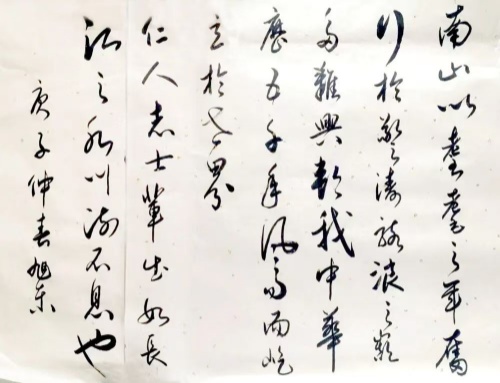 南山以耋耄之年奮
行於驚濤駭浪之巔
多難興邦我中華
歷五千年風雨而屹
立於世界
仁人志士輩出如長
江之水川流不息也
庚子仲春旭東